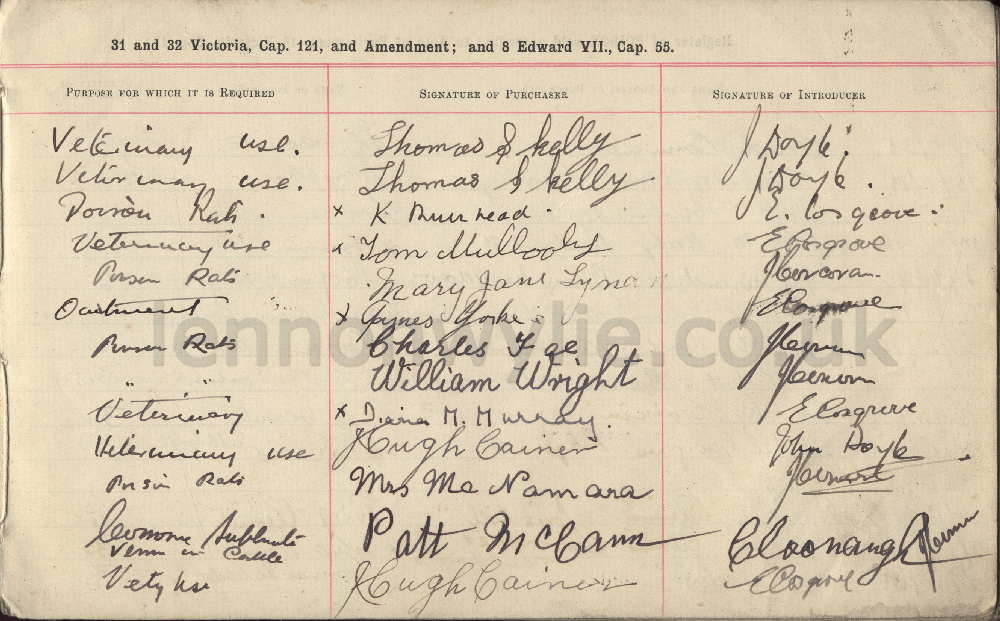 31 and 32 Victoria, Cap. 121, and Amendment; and 8 Edward VII., Cap. 55.
Purpose for which it is Required Signature of Purchaser Signature of Introducer
Veterinary use. Thomas S Kelly J Doyle.
Veterinary use. Thomas S Kelly J Doyle.
Poison Rats. x K Muirhead. E. Cosgrove.
Veterinary use x Tom Mullooly E Cosgrove
Poison Rats Mary Jane Lynam J Corcoran.
Ointment x James Yorke E Cosgrove
Poison Rats Charles
" " William Wright
Veterinary x Diana M. Murray. E Cosgrove
Veterinary use Hugh Cainen John Doyle
Poison Rats Mrs Mc Namara
Corrosive Sublimate Patt McCann Cloonaugh
in Cattle
Vety use Hugh Cainen E Cosgrove
lennonwylie.co.uk